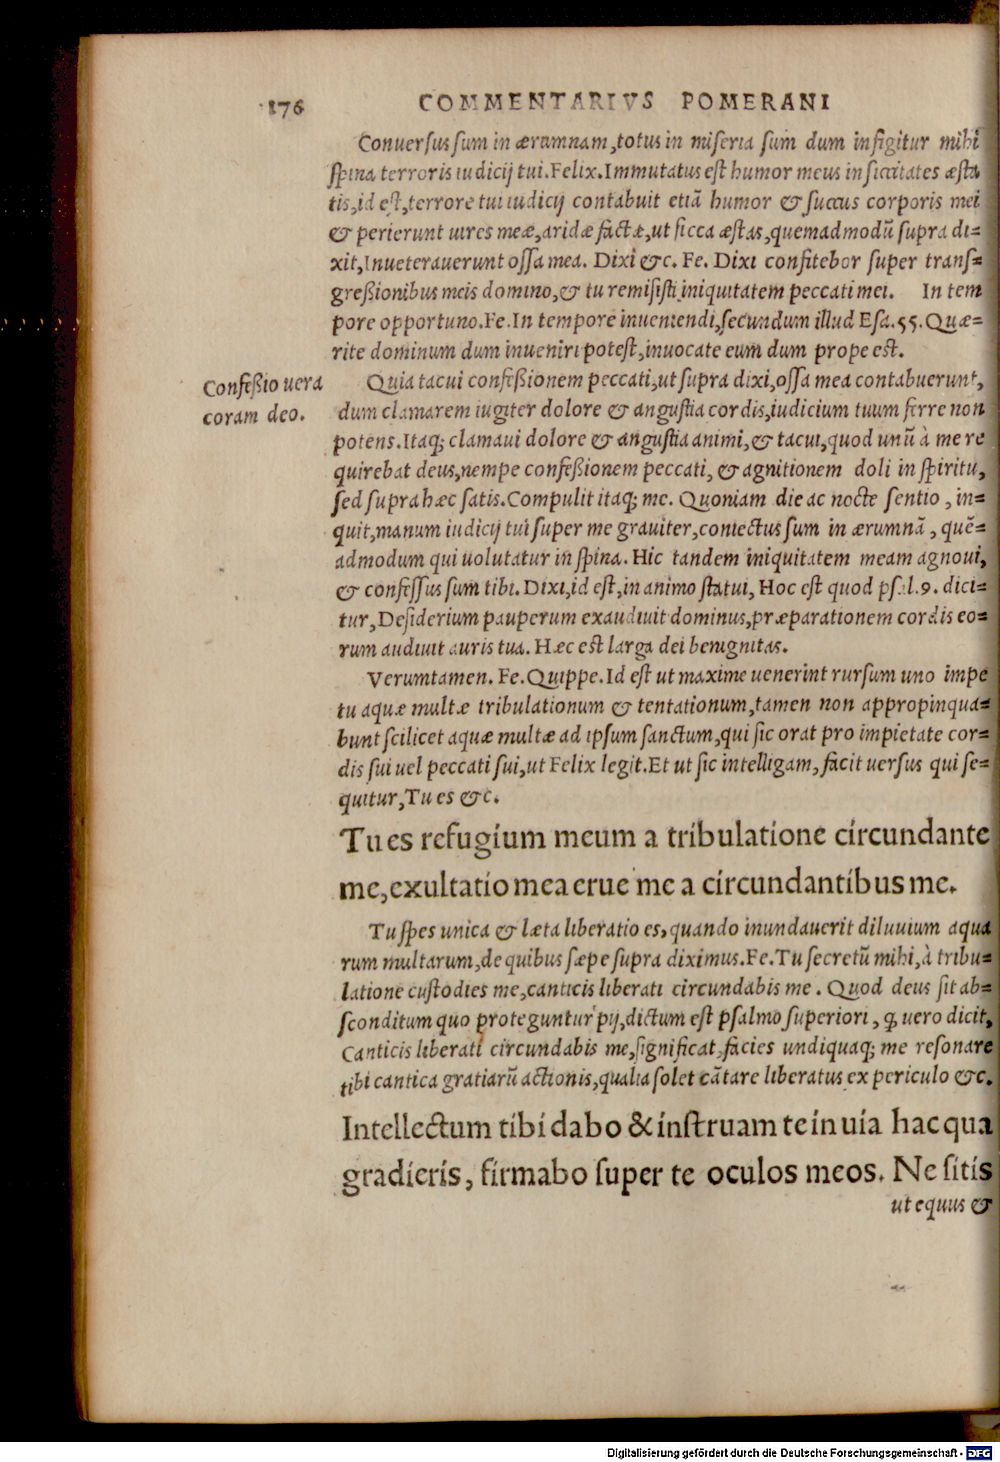 176 COMMENTARIVS POMERANI
Conuersus sum in ærumnam, totus in miseria sum dum infigitur mihi
spina terroris iudicij tui. Felix. Immutatus est humor meus in siccitates æsta
tis, id est, terrore tui iudicij contabuit etiā humor & succus corporis mei
& perierunt uires meæ, aridæ factæ, ut sicca æstas, quemadmodū supra di=
xit, Inueterauerunt ossa mea. Dixi &c. Fe. Dixi confitebor super trans=
greßionibus meis domino, & tu remisisti iniquitatem peccati mei. In tem
pore opportuno. Fe. In tempore inueniendi, secundum illud Esa. 55. Quæ=
rite dominum dum inueniri potest, inuocate eum dum prope est.
Confeßio uera
coram deo.
Quia tacui confeßionem peccati, ut supra dixi, ossa mea contabuerunt,
dum clamarem iugiter dolore & angustia cordis, iudicium tuum ferre non
potens. Itaq; clamaui dolore & angustia animi, & tacui, quod unū à me re
quirebat deus, nempe confeßionem peccati, & agnitionem doli in spiritu,
sed supra hæc satis. Compulit itaq; me. Quoniam die ac nocte sentio, in=
quit, manum iudicij tui super me grauiter, coniectus sum in ærumnā, quē=
admodum qui uolutatur in spina. Hic tandem iniquitatem meam agnoui,
& confessus sum tibi. Dixi, id est, in animo statui, Hoc est quod psal. 9. dici=
tur, Desiderium pauperum exaudiuit dominus, præparationem cordis eo=
rum audiuit auris tua. Hæc est larga dei benignitas.
Verumtamen. Fe. Quippe. Id est ut maxime uenerint rursum uno impe
tu aquæ multæ tribulationum & tentationum, tamen non appropinqua=
bunt scilicet aquæ multæ ad ipsum sanctum, qui sic orat pro impietate cor=
dis sui uel peccati sui, ut Felix legit. Et ut sic intelligam, facit uersus qui se=
quitur, Tu es &c.
Tu es refugium meum a tribulatione circundante
me, exultatio mea erue me a circundantibus me.
Tu spes unica & læta liberatio es, quando inundauerit diluuium aqua
rum multarum, de quibus sæpe supra diximus. Fe. Tu secretū mihi, à tribu=
latione custodies me, canticis liberati circundabis me. Quod deus sit ab=
sconditum quo proteguntur pij, dictum est psalmo superiori, q̃ uero dicit,
Canticis liberati circundabis me, significat, facies undiquaq; me resonare
tibi cantica gratiarū actionis, qualia solet cātare liberatus ex periculo &c.
Intellectum tibi dabo & instruam te in uia hac qua
gradieris, firmabo super te oculos meos. Ne sitis
ut equus &
Digitalisierung gefördert durch die Deutsche Forschungsgemeinschaft - DFG